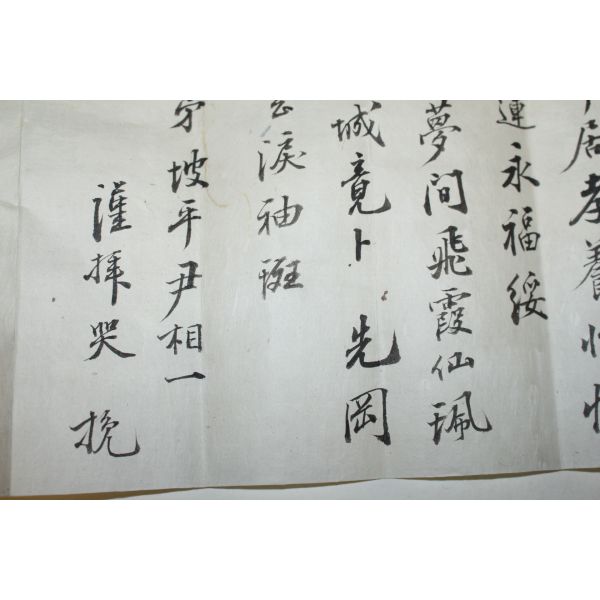 居孝養
連永福綏
夢間飛霞仙珮
城竟卜先岡
淚袖斑
坡平尹相一
謹拜哭挽